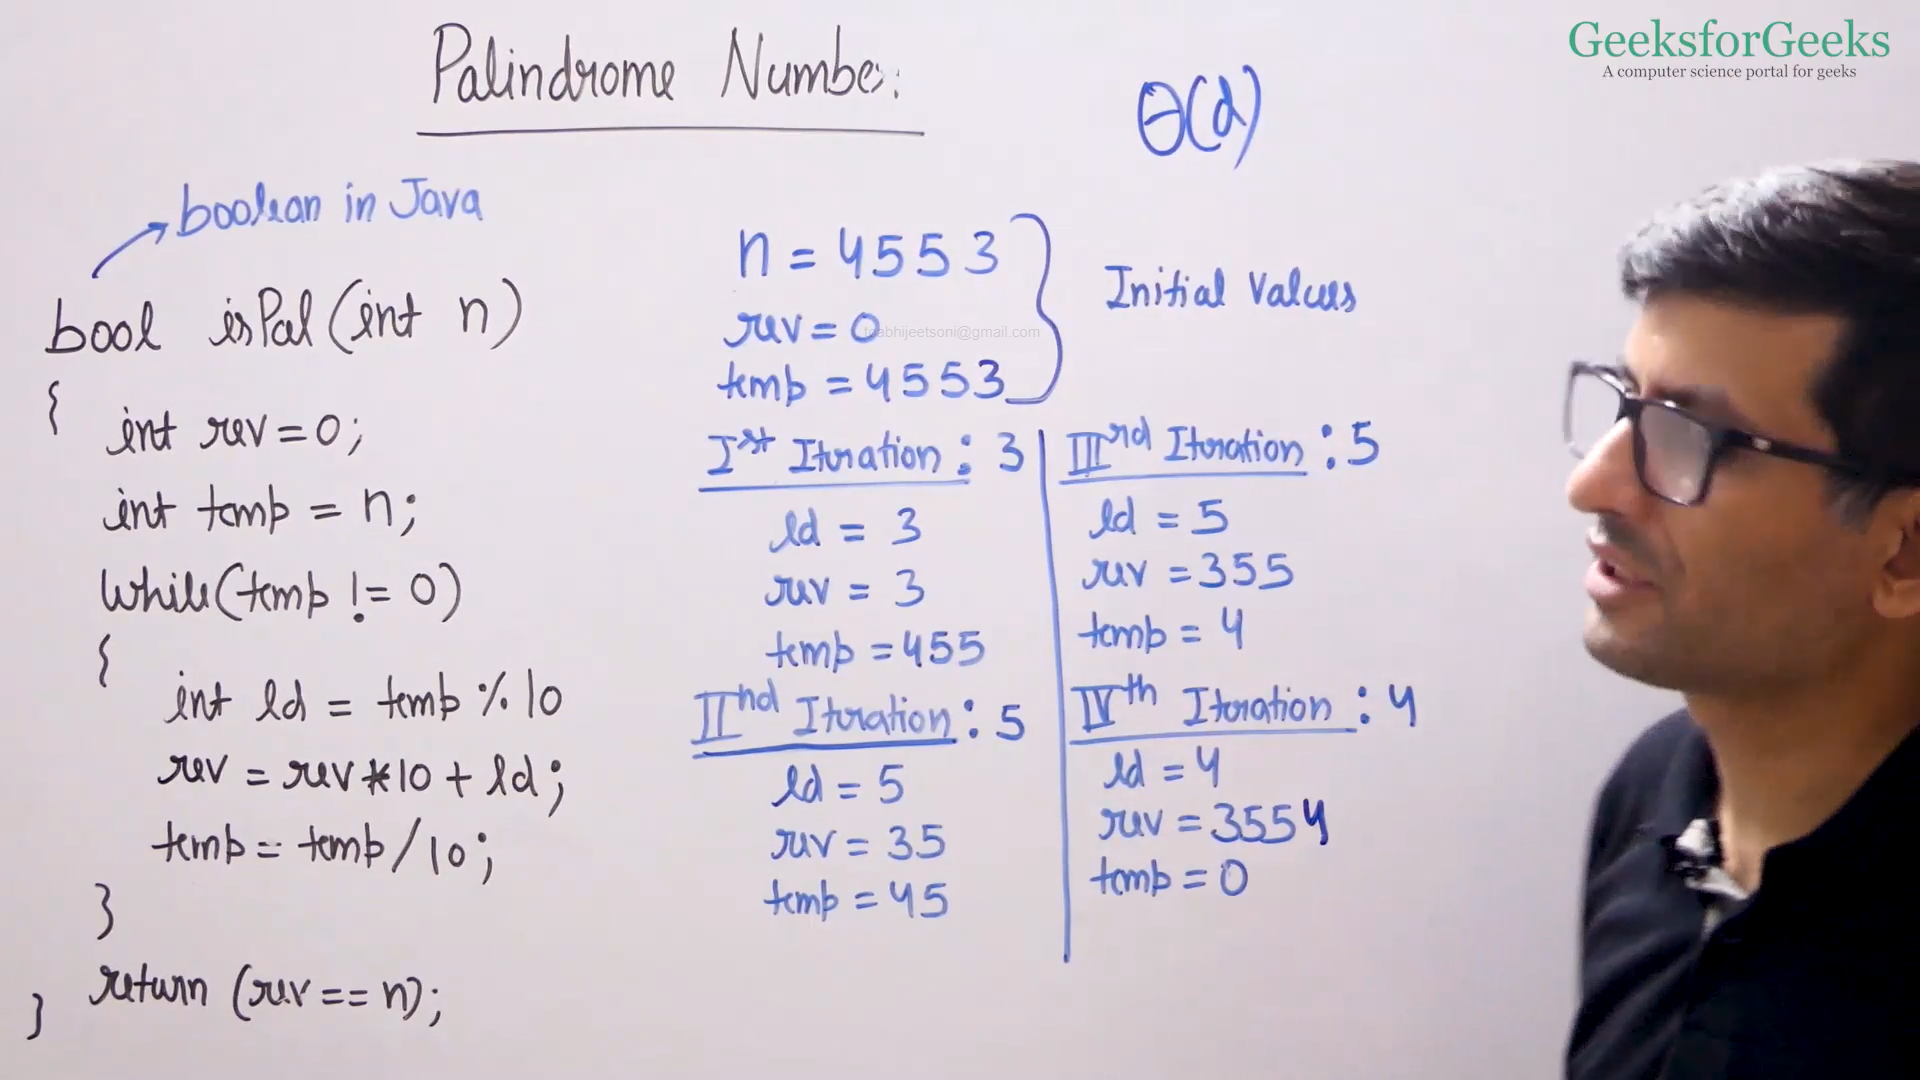 GeeksforGeeks
A computer science portal for geeks
Palindrome Number:
θ(d)
boolean in Java
bool isPal(int n)
{
int rev=0;
int temp = n;
while(temp != 0)
{
int ld = temp % 10
rev = rev*10 + ld;
temp = temp/10;
}
return (rev == n);
}
n = 4553
rev = 0
temp = 4553
Initial Values
Ist Iteration: 3
ld = 3
rev = 3
temp = 455
IInd Iteration: 5
ld = 5
rev = 35
temp = 45
IIIrd Iteration: 5
ld = 5
rev = 355
temp = 4
IVth Iteration: 4
ld = 4
rev = 3554
temp = 0